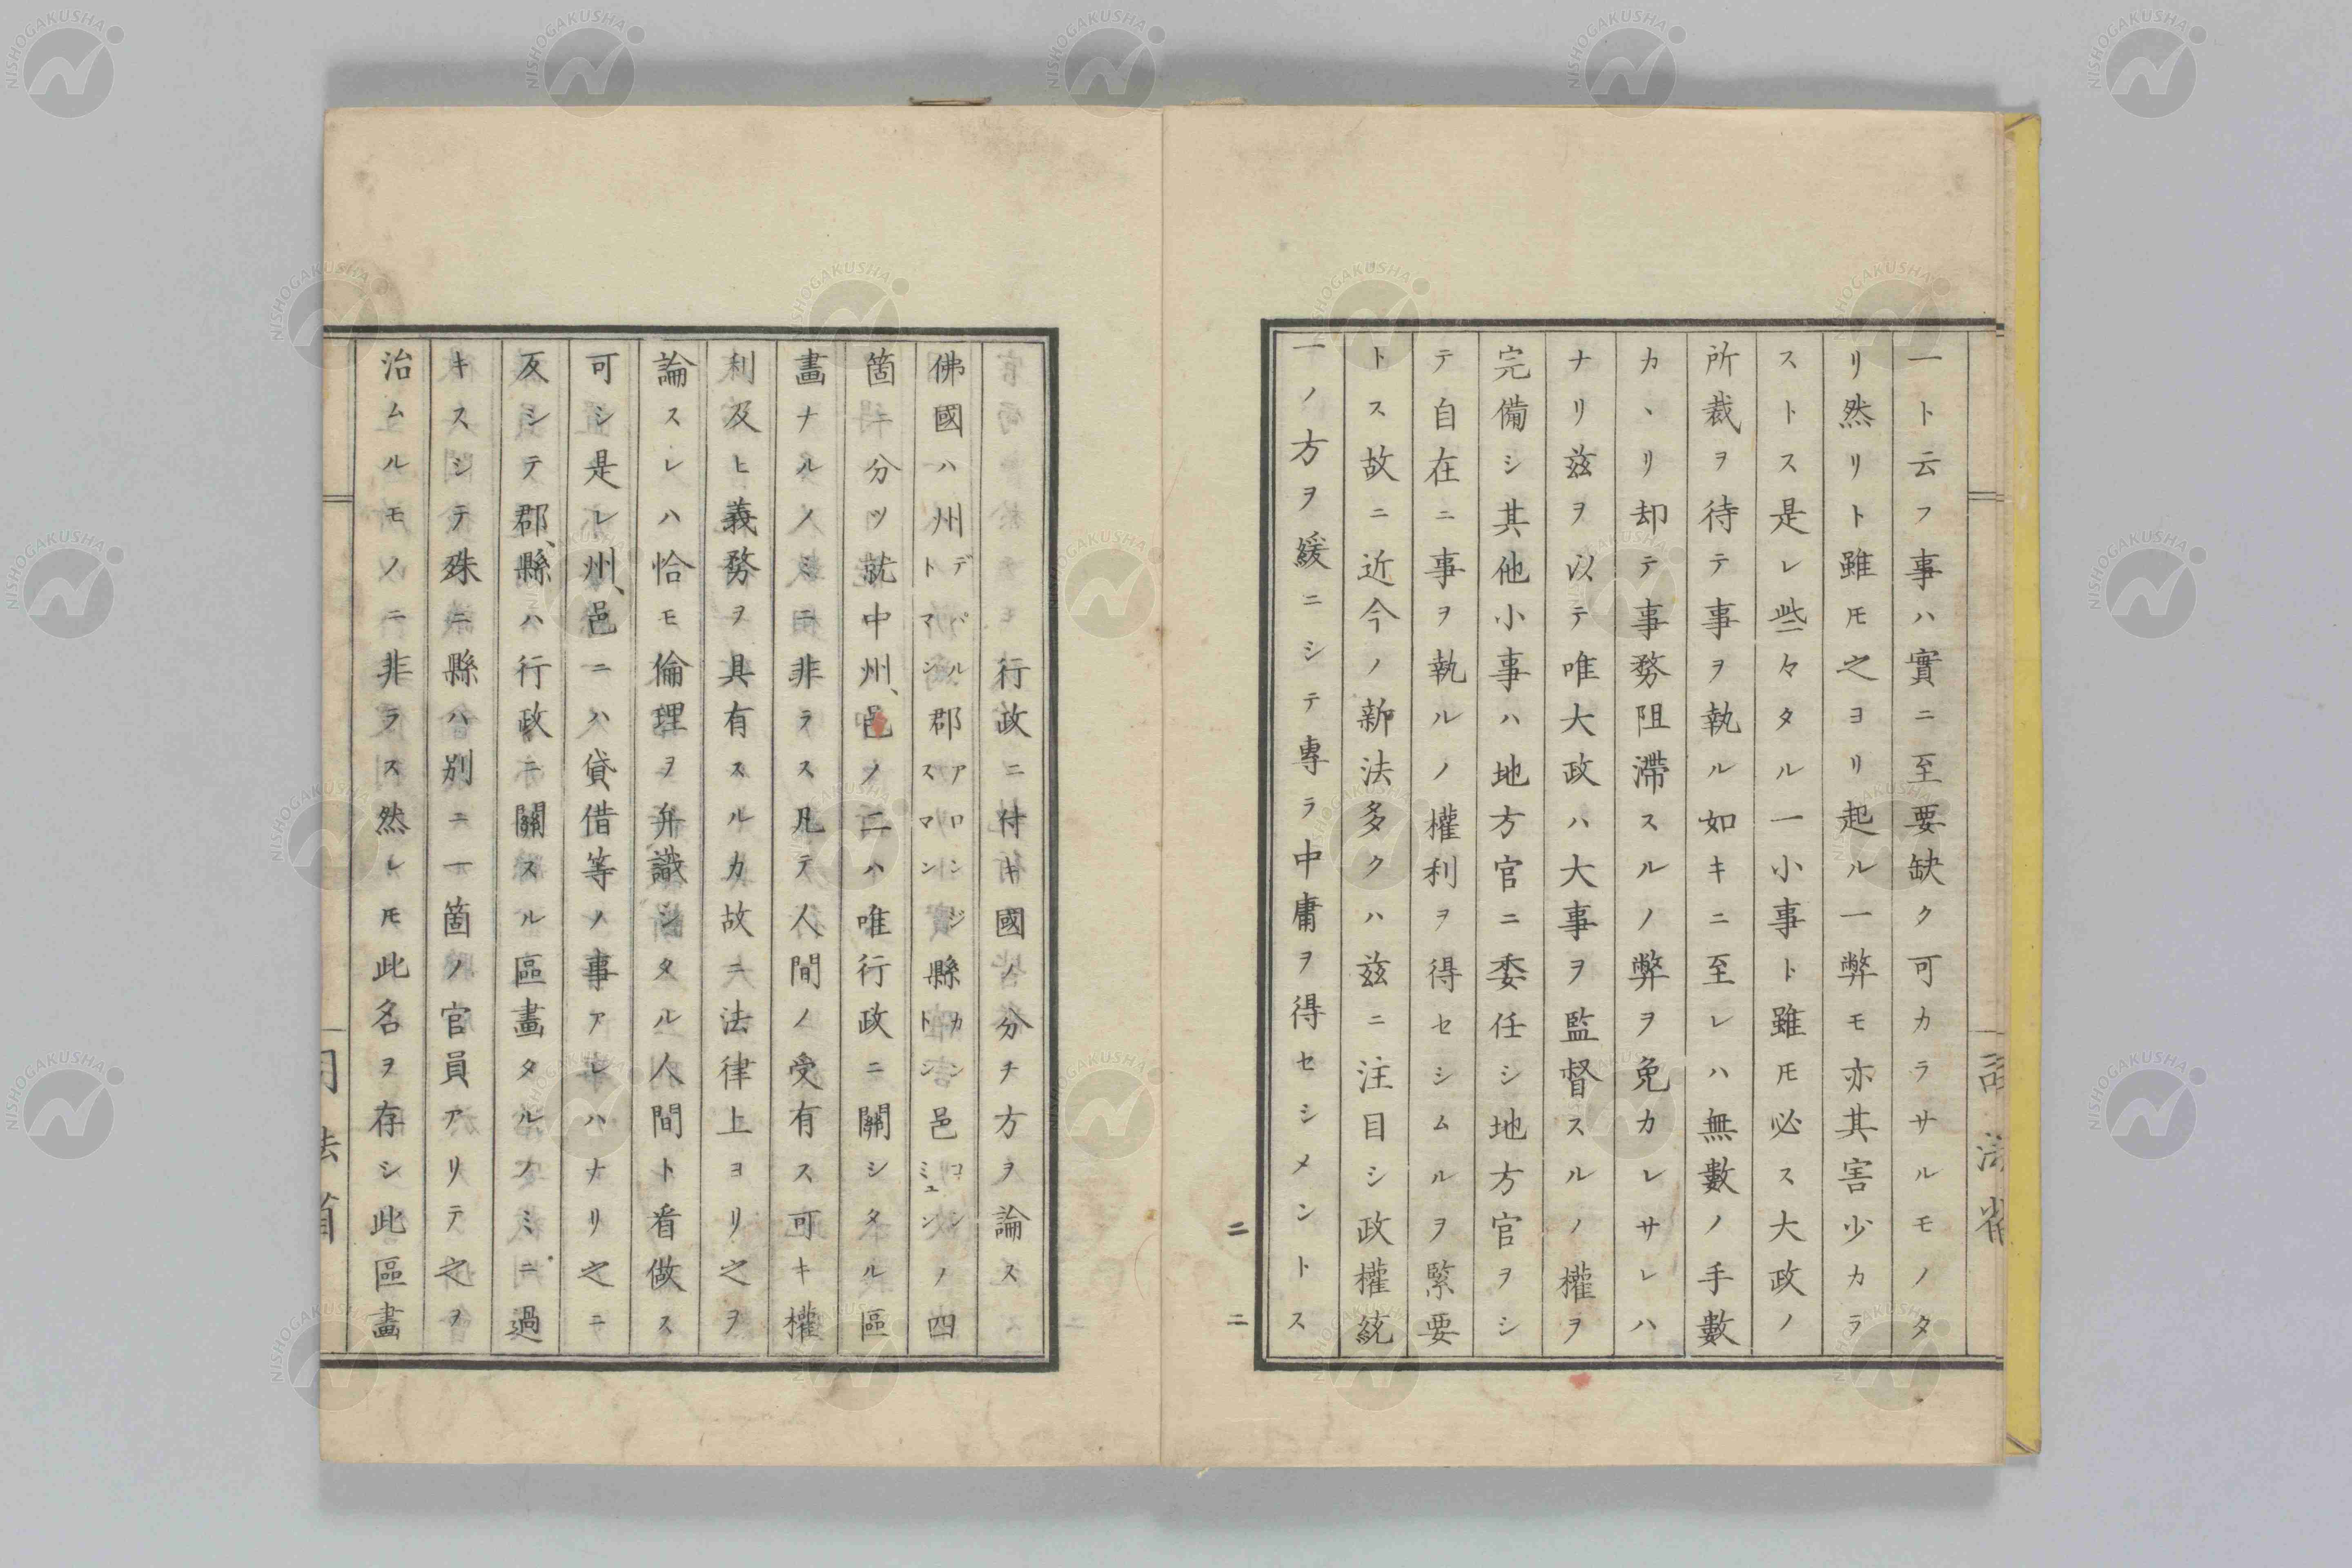 一ト云フ事ハ實ニ至要缺ク可カラサルモノタ
リ然リト雖モ之ヨリ起ル一弊モ亦其害少カラ
ストス是レ些々タル一小事ト雖モ必ス大政ノ
所裁ヲ待テ事ヲ執ル如キニ至レハ無數ノ手數
カヽリ却テ事務阻滯スルノ弊ヲ免カレサレハ
ナリ兹ヲ以テ唯大政ハ大事ヲ監督スルノ權ヲ
完備シ其他小事ハ地方官ニ委任シ地方官ヲシ
テ自在ニ事ヲ執ルノ權利ヲ得セシムルヲ緊要
トス故ニ近今ノ新法多クハ兹ニ注目シ政權統
一ノ方ヲ緩ニシテ專ラ中庸ヲ得セシメントス
二
二
行政ニ付キ國ノ分チ方ヲ論ス
佛國ハ州デパルトマシ郡アロンジスマン縣カントン邑コンミュンノ四
箇ニ分ツ就中州、邑ノ二ハ唯行政ニ關シタル區
畫ナルノミニ非ラス凡テ人間ノ受有ス可キ權
利及ヒ義務ヲ具有スルカ故ニ法律上ヨリ之ヲ
論スレハ恰モ倫理ヲ弁識シタル人間ト看做ス
可シ是レ州、邑ニハ貸借等ノ事アレハナリ之ニ
反シテ郡、縣ハ行政ニ關スル區畫タルノミニ過
キスシテ殊ニ縣ハ別ニ一箇ノ官員アリテ之ヲ
治ムルモノニ非ラス然レモ此名ヲ存シ此區畫